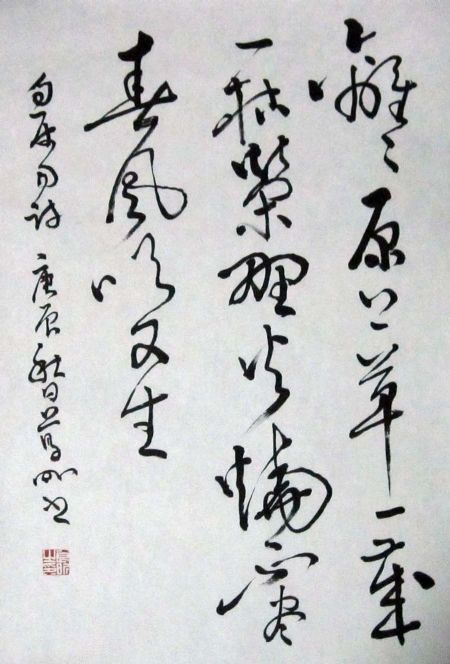 離々原上草一歲
一枯榮野火燒不盡
春風吹又生
白居易詩 庚辰秋日